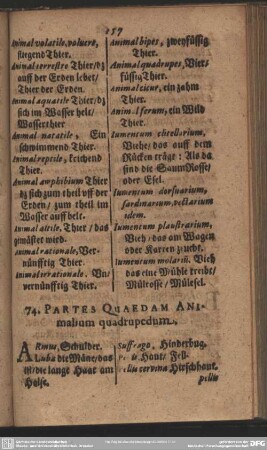 157
Animal volatile, volucre,
fliegend Thier.
Animal terrestre Thier/dz
auff der Erden lebet/
Thier der Erden.
Animal aquatile Thier/dz
sich im Wasser helt/
Wasserthier
Animal natatile, Ein
schwimmend Thier.
Animal reptile, krichend
Thier.
Animal amphibium Thier
dz sich zum theil vff der
Erden/ zum theil im
Wasser auff belt.
Animal altile, Thier / das
gemästet wird.
Animal rationale, Ver-
nünfftig Thier.
Animal irrationale, Vn-
vernünfftig Thier.
Animal bipes, zweyfüssig
Thier.
Animal quadrupes, Vier-
füssig Thier.
Animal cicur, ein zahm
Thier.
Animal ferum, ein Wild
Thier.
Iumentum clitellarium,
Viehe/ das auff dem
Rücken träge: Als da
sind die Saum Rosse/
oder Esel.
Iumentum dorsuarium,
sardinarium, vectarium
idem.
Iumentum plaustrarium,
Vieh / das am Wagen
oder Karren zucht.
Iumentum molarium. Vieh
das eine Mühle treibt/
Mülrosse / Mülesel.
74. PARTES QUAEDAM ANI-
malium quadrupedum.
ARmus, Schulder.
Iuba die Mäne / das
ist/ die lange Haar am
Halse.
Suffrago, Hinderbug.
Pellis Haut/ Fell.
Pellis cervina Hirschhaut.
pellis